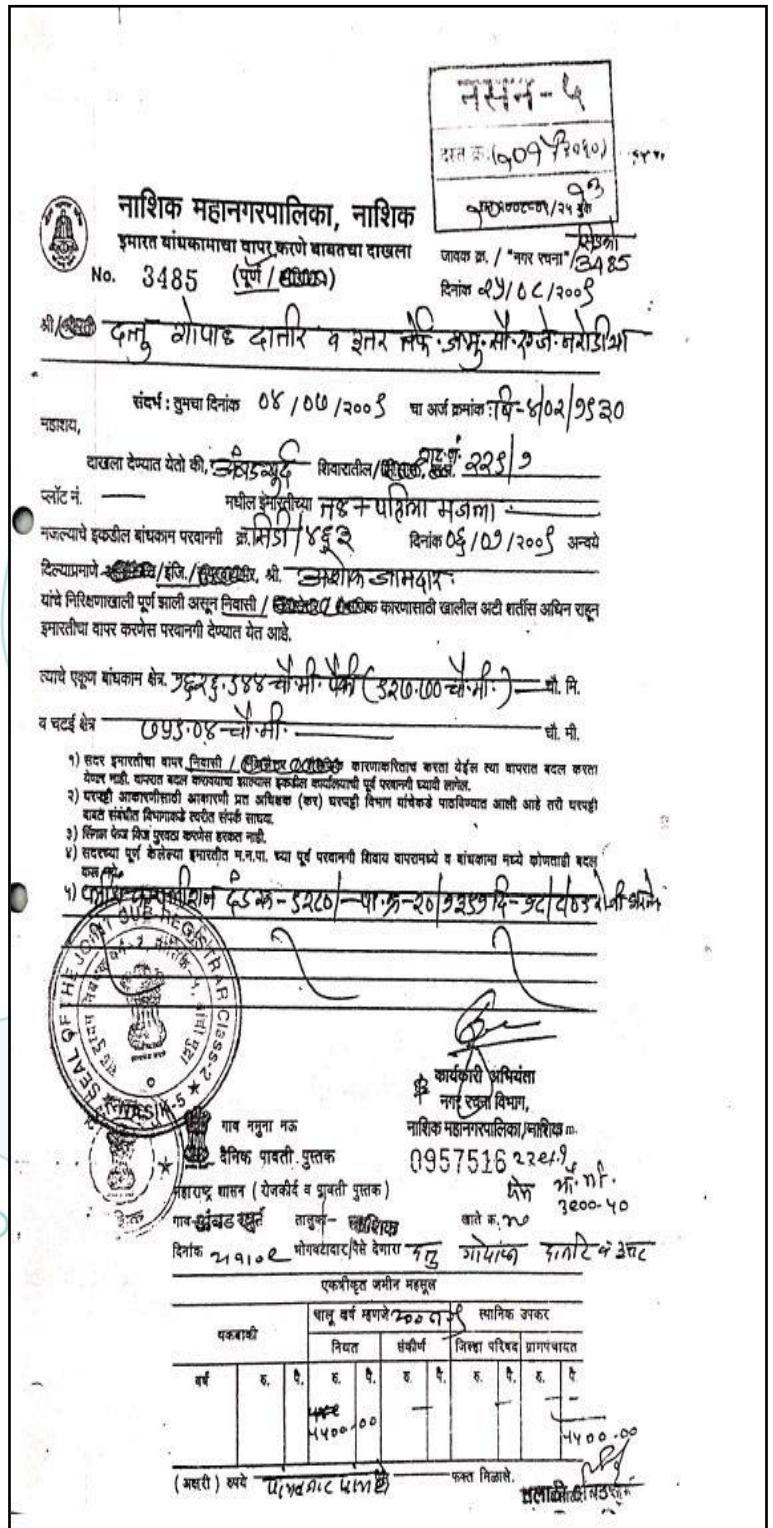 नसन-५
दस्त क्र. (१०१४/२०१०)
१३
नाशिक महानगरपालिका, नाशिक
इमारत बांधकामाचा वापर करणे बाबतचा दाखला
No. 3485 (पूर्ण /
सिडको
जावक क्र. / "नगर रचना" / 3485
दिनांक २५/०८/२००९
श्री / दत्तु गोपाळ दातीर व इतर तर्फे
संदर्भ : तुमचा दिनांक ०४/०७/२००९ चा अर्ज क्रमांक : बि-४/०२/१९३०
महाशय,
दाखला देण्यात येतो की, अंबड खुर्द शिवारातील / गट नं. २२९/१
प्लॉट नं. — मधील इमारतीच्या तळ + पहिला मजला
मजल्याचे इकडील बांधकाम परवानगी क्र. सिडी/४६३ दिनांक ०६/०१/२००९ अन्वये
दिल्याप्रमाणे /इंजि./ श्री. अशोक जामदार
यांचे निरिक्षणाखाली पूर्ण झाली असून निवासी / कारणासाठी खालील अटी शर्तीस अधिन राहून
इमारतीचा वापर करणेस परवानगी देण्यात येत आहे.
त्याचे एकूण बांधकाम क्षेत्र. १६२६.९४४ चौ.मी. पैकी (९२७.७० चौ.मी.) चौ. मि.
व चटई क्षेत्र ७५९.०४ चौ.मी. चौ. मी.
१) सदर इमारतीचा वापर निवासी / कारणाकरिताच करता येईल त्या वापरात बदल करता
येणार नाही. वापरात बदल करावयाचा झाल्यास इकडील कार्यालयाची पूर्व परवानगी घ्यावी लागेल.
२) घरपट्टी आकारणीसाठी आकारणी प्रत अधिक्षक (कर) घरपट्टी विभाग यांचेकडे पाठविण्यात आली आहे तरी घरपट्टी
बाबत संबंधीत विभागाकडे त्वरीत संपर्क साधवा.
३) सिंगल फेज विज पुरवठा करणेस हरकत नाही.
४) सदरच्या पूर्ण केलेल्या इमारतीत म.न.पा. च्या पूर्व परवानगी शिवाय वापरामध्ये व बांधकामा मध्ये कोणताही बदल
करू नये.
५) दंड रु-९२८०/- पा.क्र-२०/१३९१ दि-१८/
SEAL OF THE JOINT SUB REGISTRAR Class-2
NASIK-5
कार्यकारी अभियंता
नगर रचना विभाग,
नाशिक महानगरपालिका, नाशिक
गाव नमुना नऊ
दैनिक पावती पुस्तक
0957516
महाराष्ट्र शासन (रोजकीर्द व पावती पुस्तक)
३९००-५०
गाव- अंबड खुर्द तालुका- नाशिक खाते क्र.
दिनांक भोगवटादार/पैसे देणारा दत्तु गोपाळ दातीर व इतर
एकत्रीकृत जमीन महसूल
थकबाकी चालू वर्ष म्हणजे स्थानिक उपकर
नियत संकीर्ण जिल्हा परिषद ग्रामपंचायत
वर्ष रु. पै. रु. पै. रु. पै. रु. पै. रु. पै.
५५००-०० — — —
५५००-००
(अक्षरी) रुपये पाच हजार पाचशे फक्त मिळाले.
तलाठी अंबड खुर्द